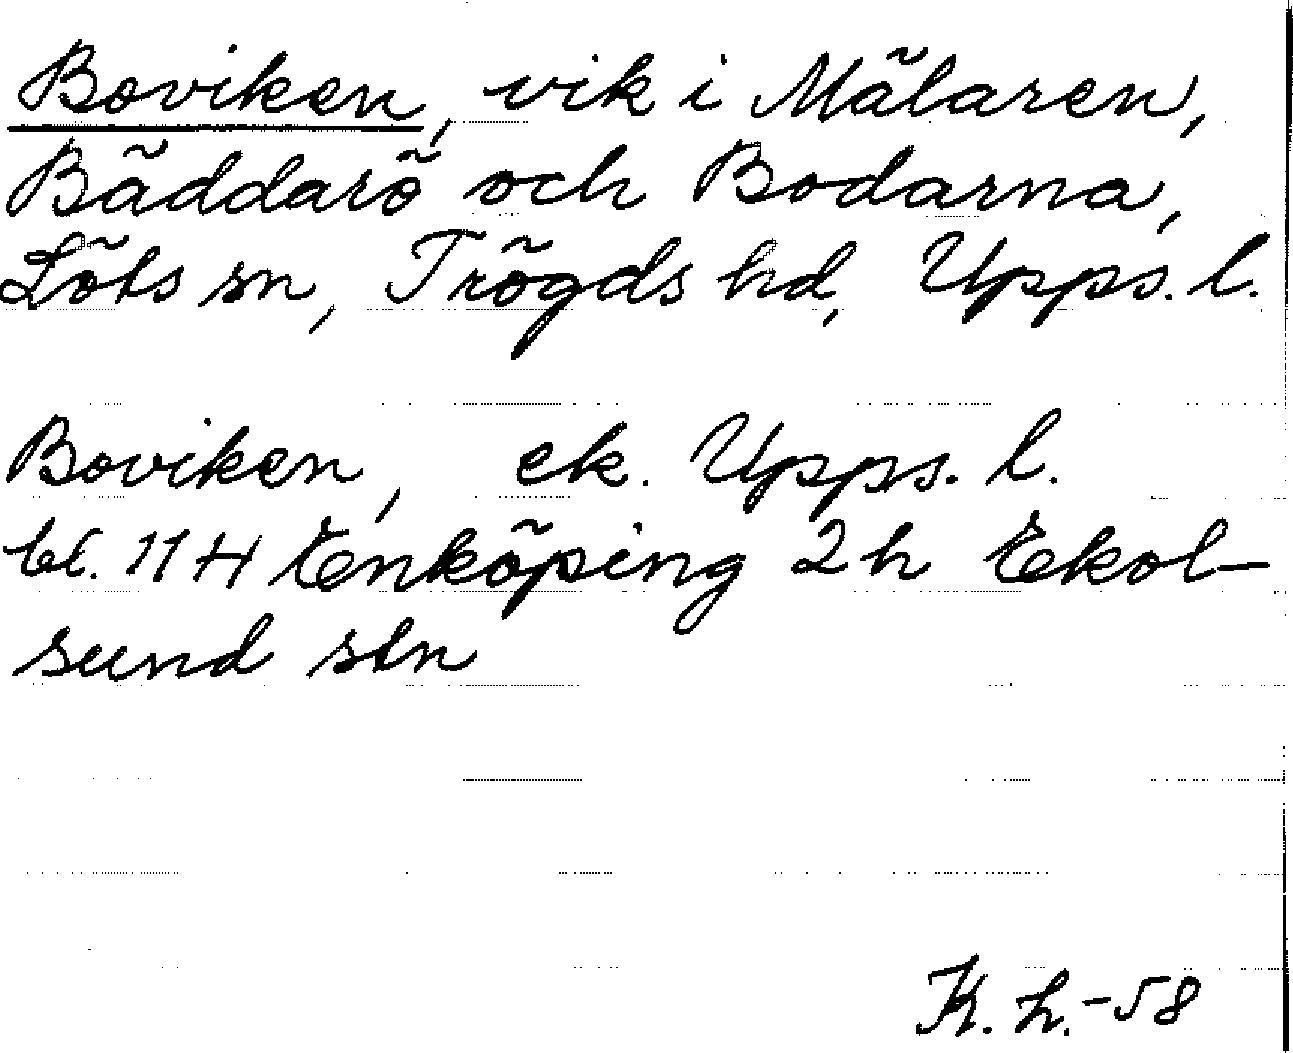 Boviken, vik i Mälaren,
Bäddarö och Bodarna,
Löts sn, Trögds hd, Upps. l.
Boviken, ek. Upps. l.
bl. 11 H Enköping 2h Ekol-
sund stn
K. L. -58